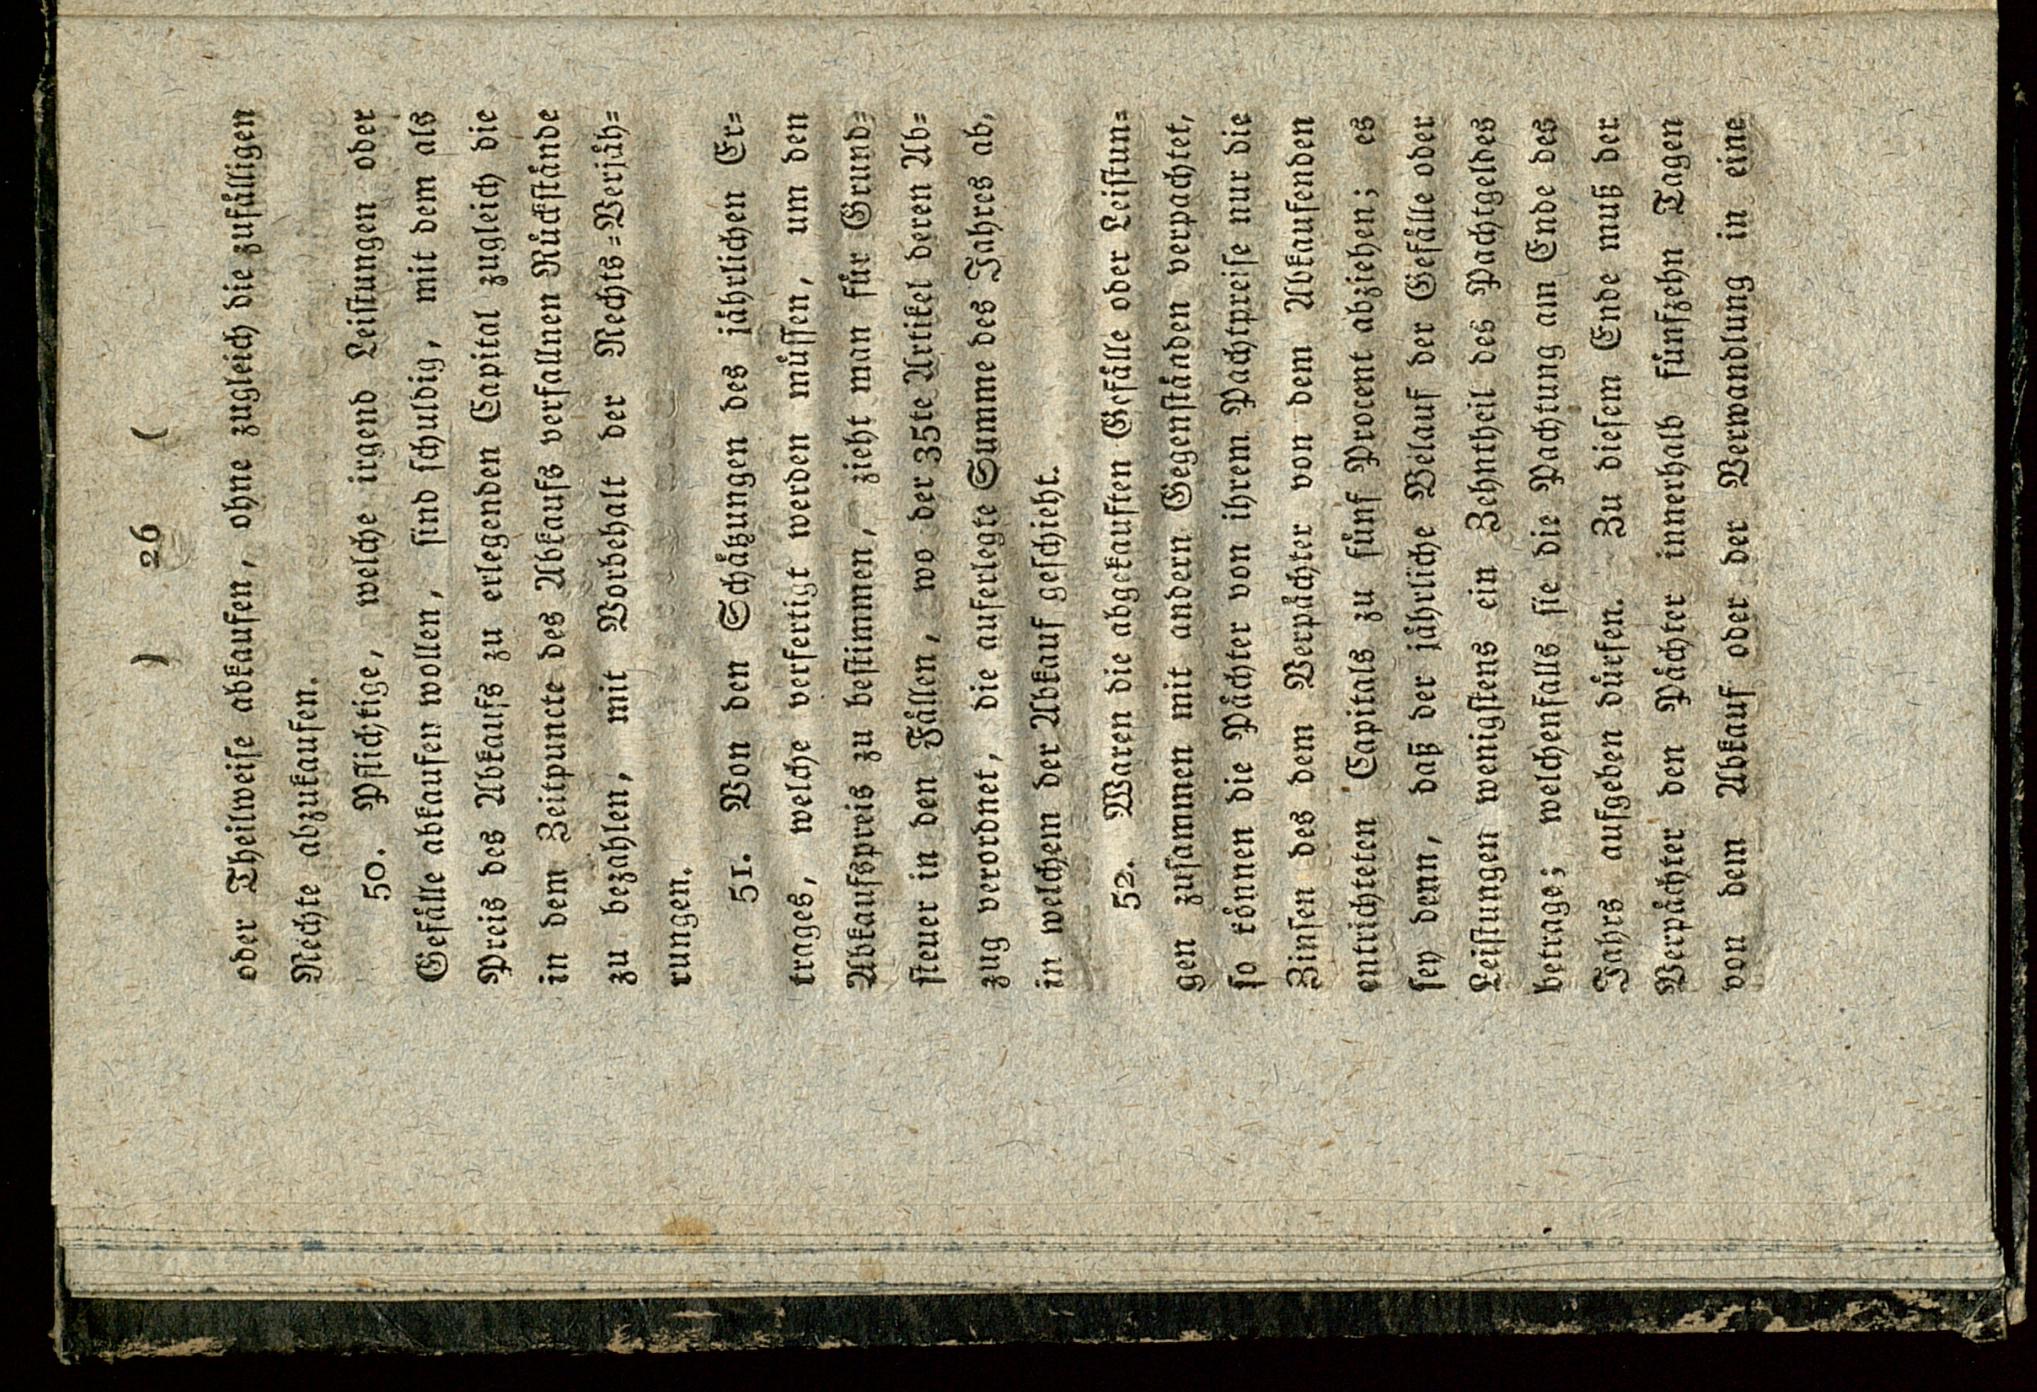 ) 26 (
oder Theilweise abkaufen, ohne zugleich die zufälligen
Rechte abzukaufen.
50. Pflichtige, welche irgend Leistungen oder
Gefälle abkaufen wollen, sind schuldig, mit dem als
Preis des Abkaufs zu erlegenden Capital zugleich die
in dem Zeitpuncte des Abkaufs verfallnen Rückstände
zu bezahlen, mit Vorbehalt der Rechts=Verjäh=
rungen.
51. Von den Schätzungen des jährlichen Er=
trages, welche verfertigt werden müssen, um den
Abkaufspreis zu bestimmen, zieht man für Grund=
steuer in den Fällen, wo der 35te Artikel deren Ab=
zug verordnet, die auferlegte Summe des Jahres ab,
in welchem der Abkauf geschieht.
52. Waren die abgekauften Gefälle oder Leistun=
gen zusammen mit andern Gegenständen verpachtet,
so können die Pächter von ihrem Pachtpreise nur die
Zinsen des dem Verpächter von dem Abkaufenden
entrichteten Capitals zu fünf Procent abziehen; es
sey denn, daß der jährliche Belauf der Gefälle oder
Leistungen wenigstens ein Zehntheil des Pachtgeldes
betrage; welchenfalls sie die Pachtung am Ende des
Jahrs aufgeben dürfen. Zu diesem Ende muß der
Verpächter den Pächter innerhalb fünfzehn Tagen
von dem Abkauf oder der Verwandlung in eine